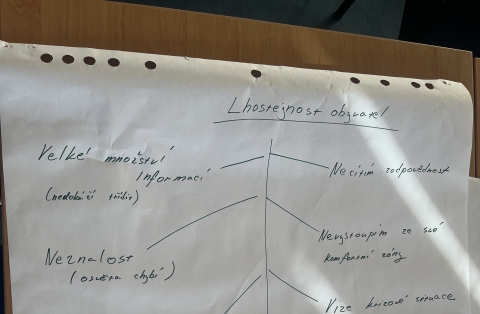 Lhostejnost obyvatel
Velké množství
informací
(nedokáží třídit)
Necítím zodpovědnost
Nevystoupím ze své
komfortní zóny
Neznalost
(osvěta chybí)
Vize krizové situace